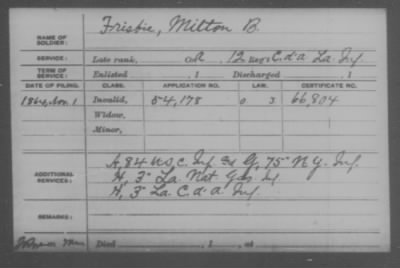 NAME OF SOLDIER: Frisbie, Milton B.
SERVICE: Late rank, Co. A, 12 Reg't C. d'A. La. Inf
TERM OF SERVICE: Enlisted , 1 Discharged , 1
DATE OF FILING. CLASS. APPLICATION NO. LAW. CERTIFICATE NO.
1864, Nov. 1 Invalid, 54,178 0 3. 66,804
Widow,
Minor,
ADDITIONAL SERVICES: A, 84 U.S.C. Inf & G, 75" N.Y. Inf.
H, 3" La. Nat. Gds. Inf
H, 3" La. C. d'A. Inf.
REMARKS:
Died , 1 , at